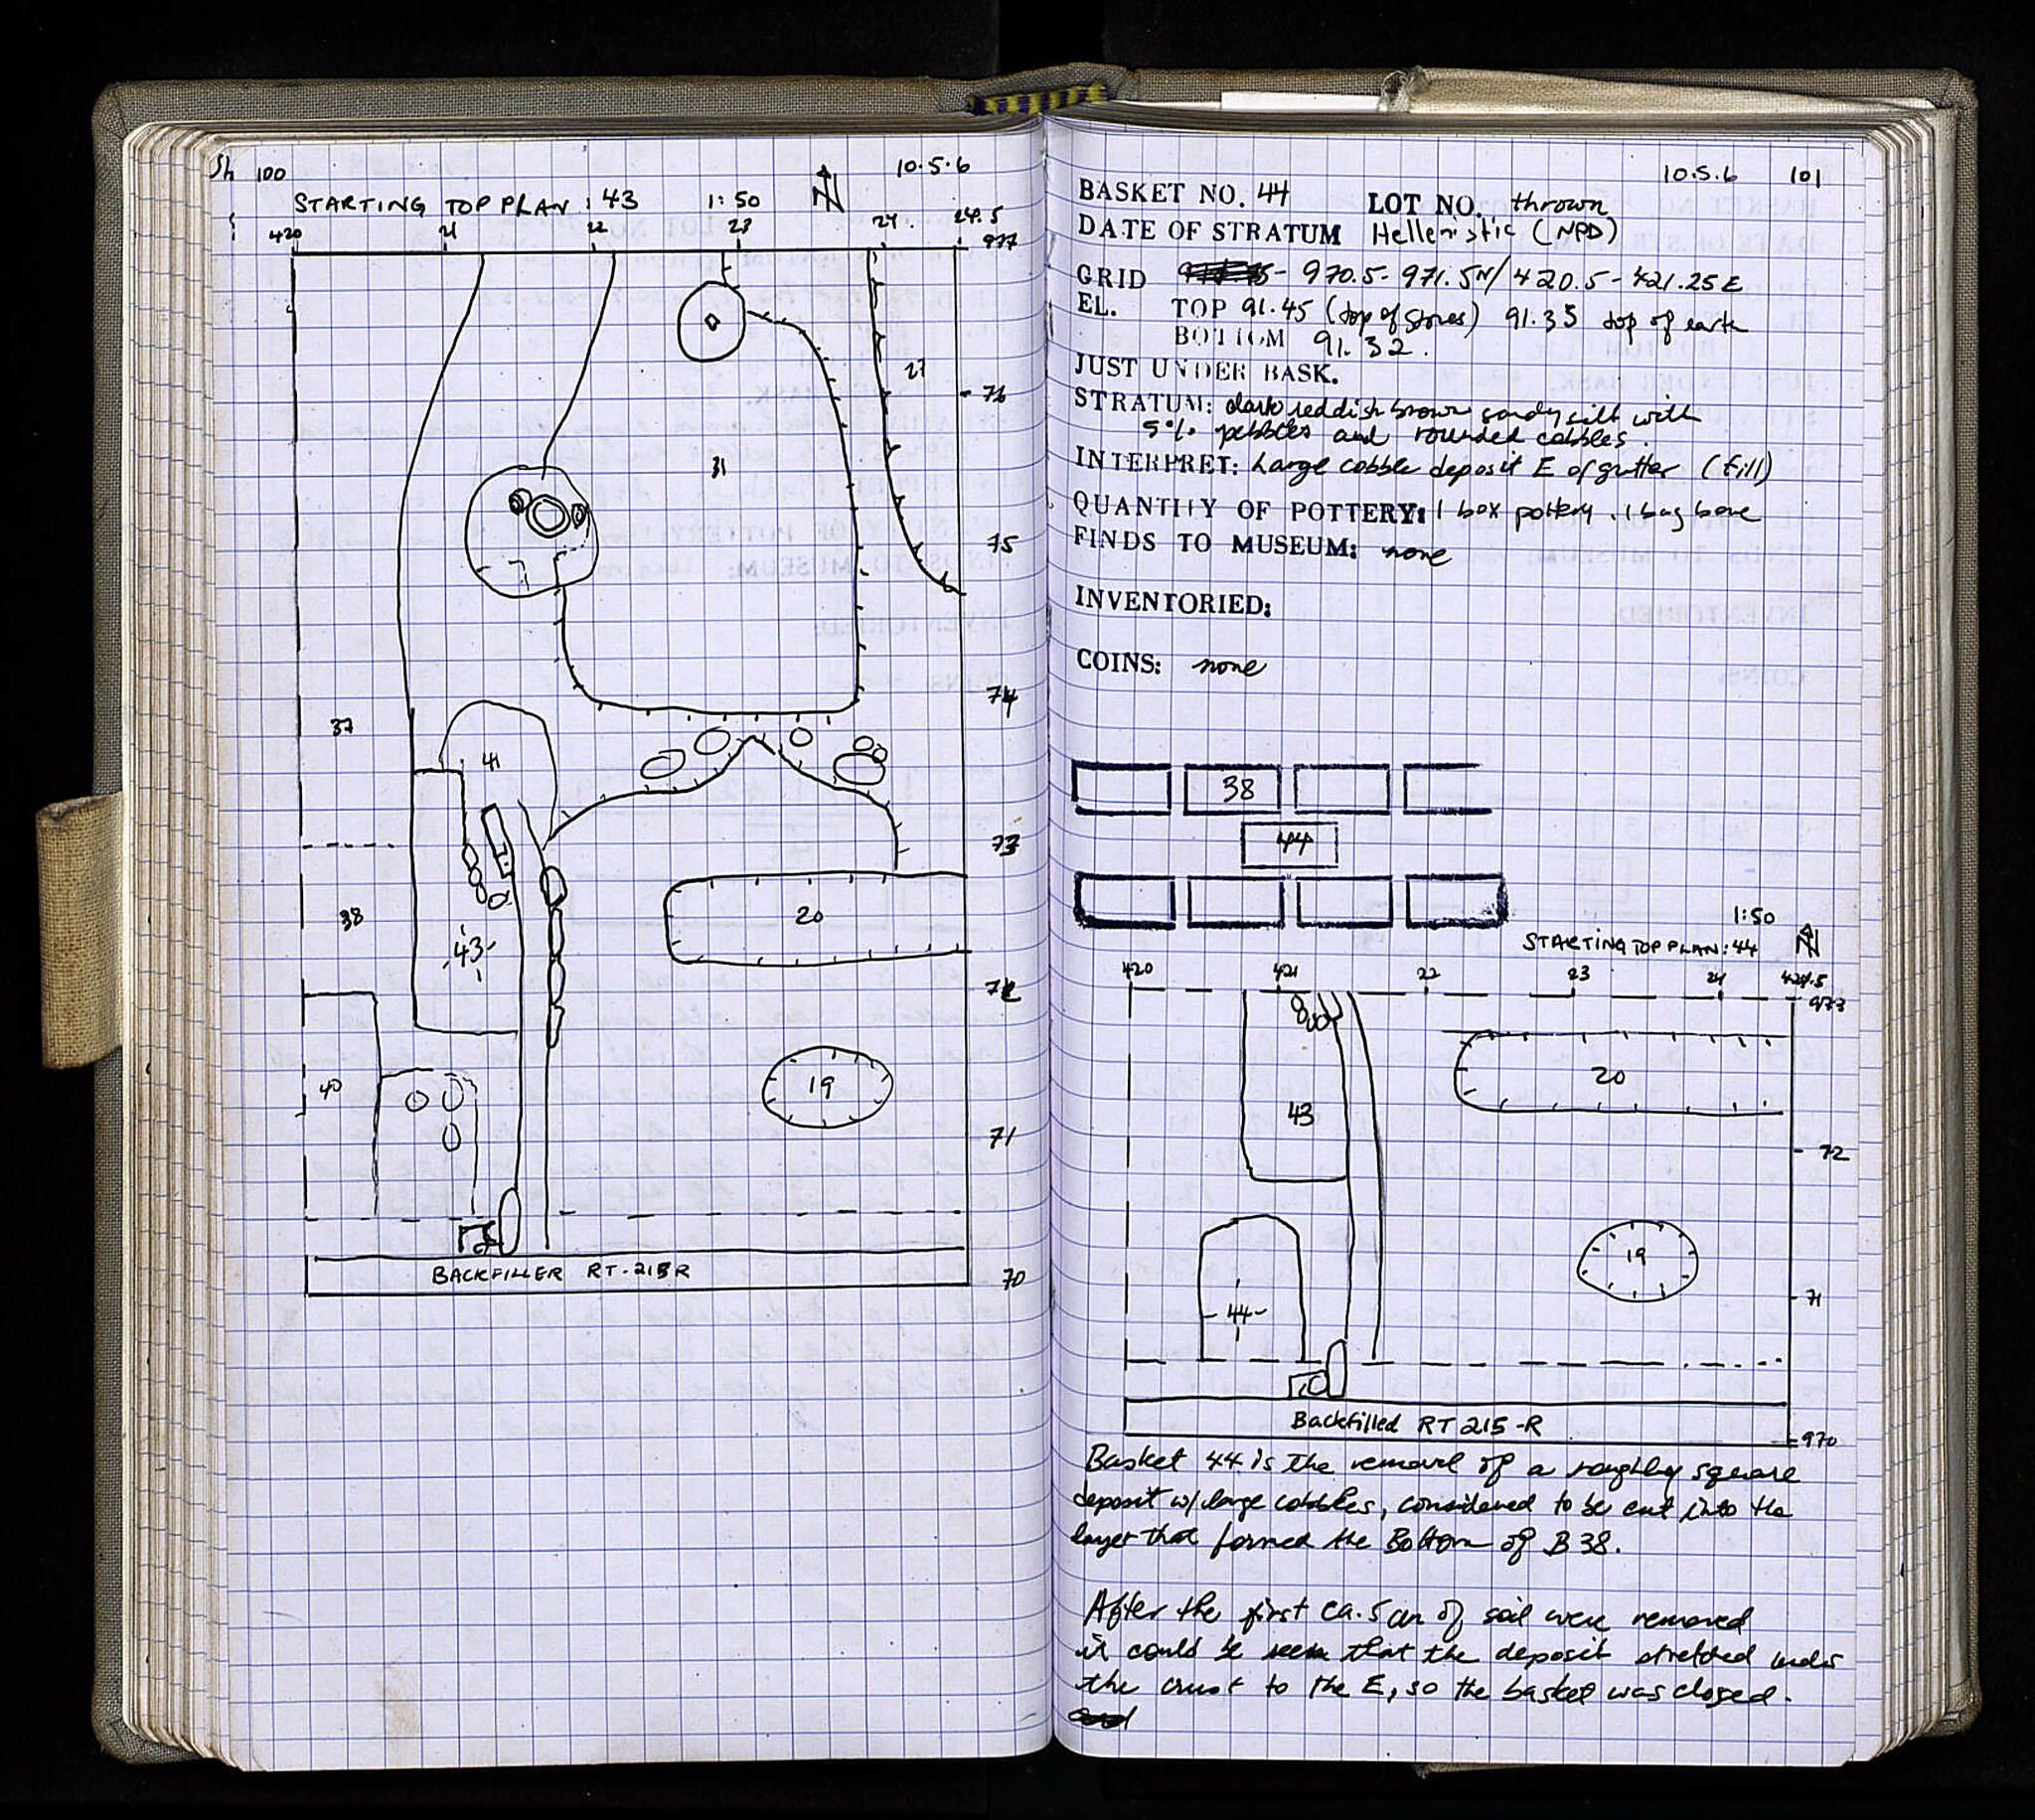 Sh 100
10.5.6
STARTING TOP PLAN : 43 1:50 N
420 21 22 23 24 24.5
977
27
76
31
75
74
37
41
73
38
20
43
72
40
19
71
BACKFILLER RT-215R
70
10.5.6 101
BASKET NO. 44 LOT NO. thrown
DATE OF STRATUM Hellenistic (NPD)
GRID 970.5-971.5N/420.5-421.25E
EL. TOP 91.45 (top of stones) 91.35 top of earth
BOTTOM 91.32.
JUST UNDER BASK.
STRATUM: dark reddish brown sandy silt with
5% pebbles and rounded cobbles.
INTERPRET: Large cobble deposit E of gutter (fill)
QUANTITY OF POTTERY: 1 box pottery. 1 bag bone
FINDS TO MUSEUM: none
INVENTORIED:
COINS: none
38
44
1:50
STARTING TOP PLAN: 44 N
420 421 22 23 24 424.5
973
20
43
72
19
71
44
Backfilled RT 215-R
970
Basket 44 is the removal of a roughly square
deposit w/ large cobbles, considered to be cut into the
layer that formed the Bottom of B 38.
After the first ca. 5cm of soil were removed
it could be seen that the deposit stretched under
the crust to the E, so the basket was closed.